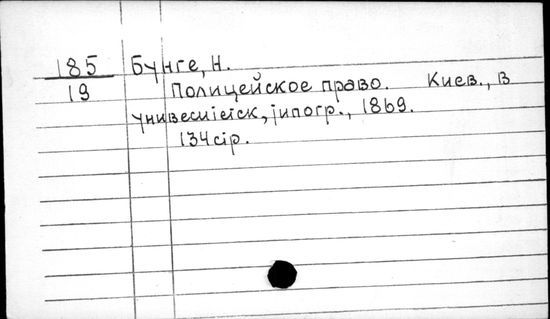 185 Бунге, Н.
19 Полицейское право. Киев., В
унивеситетск, типогр., 1869.
134стр.